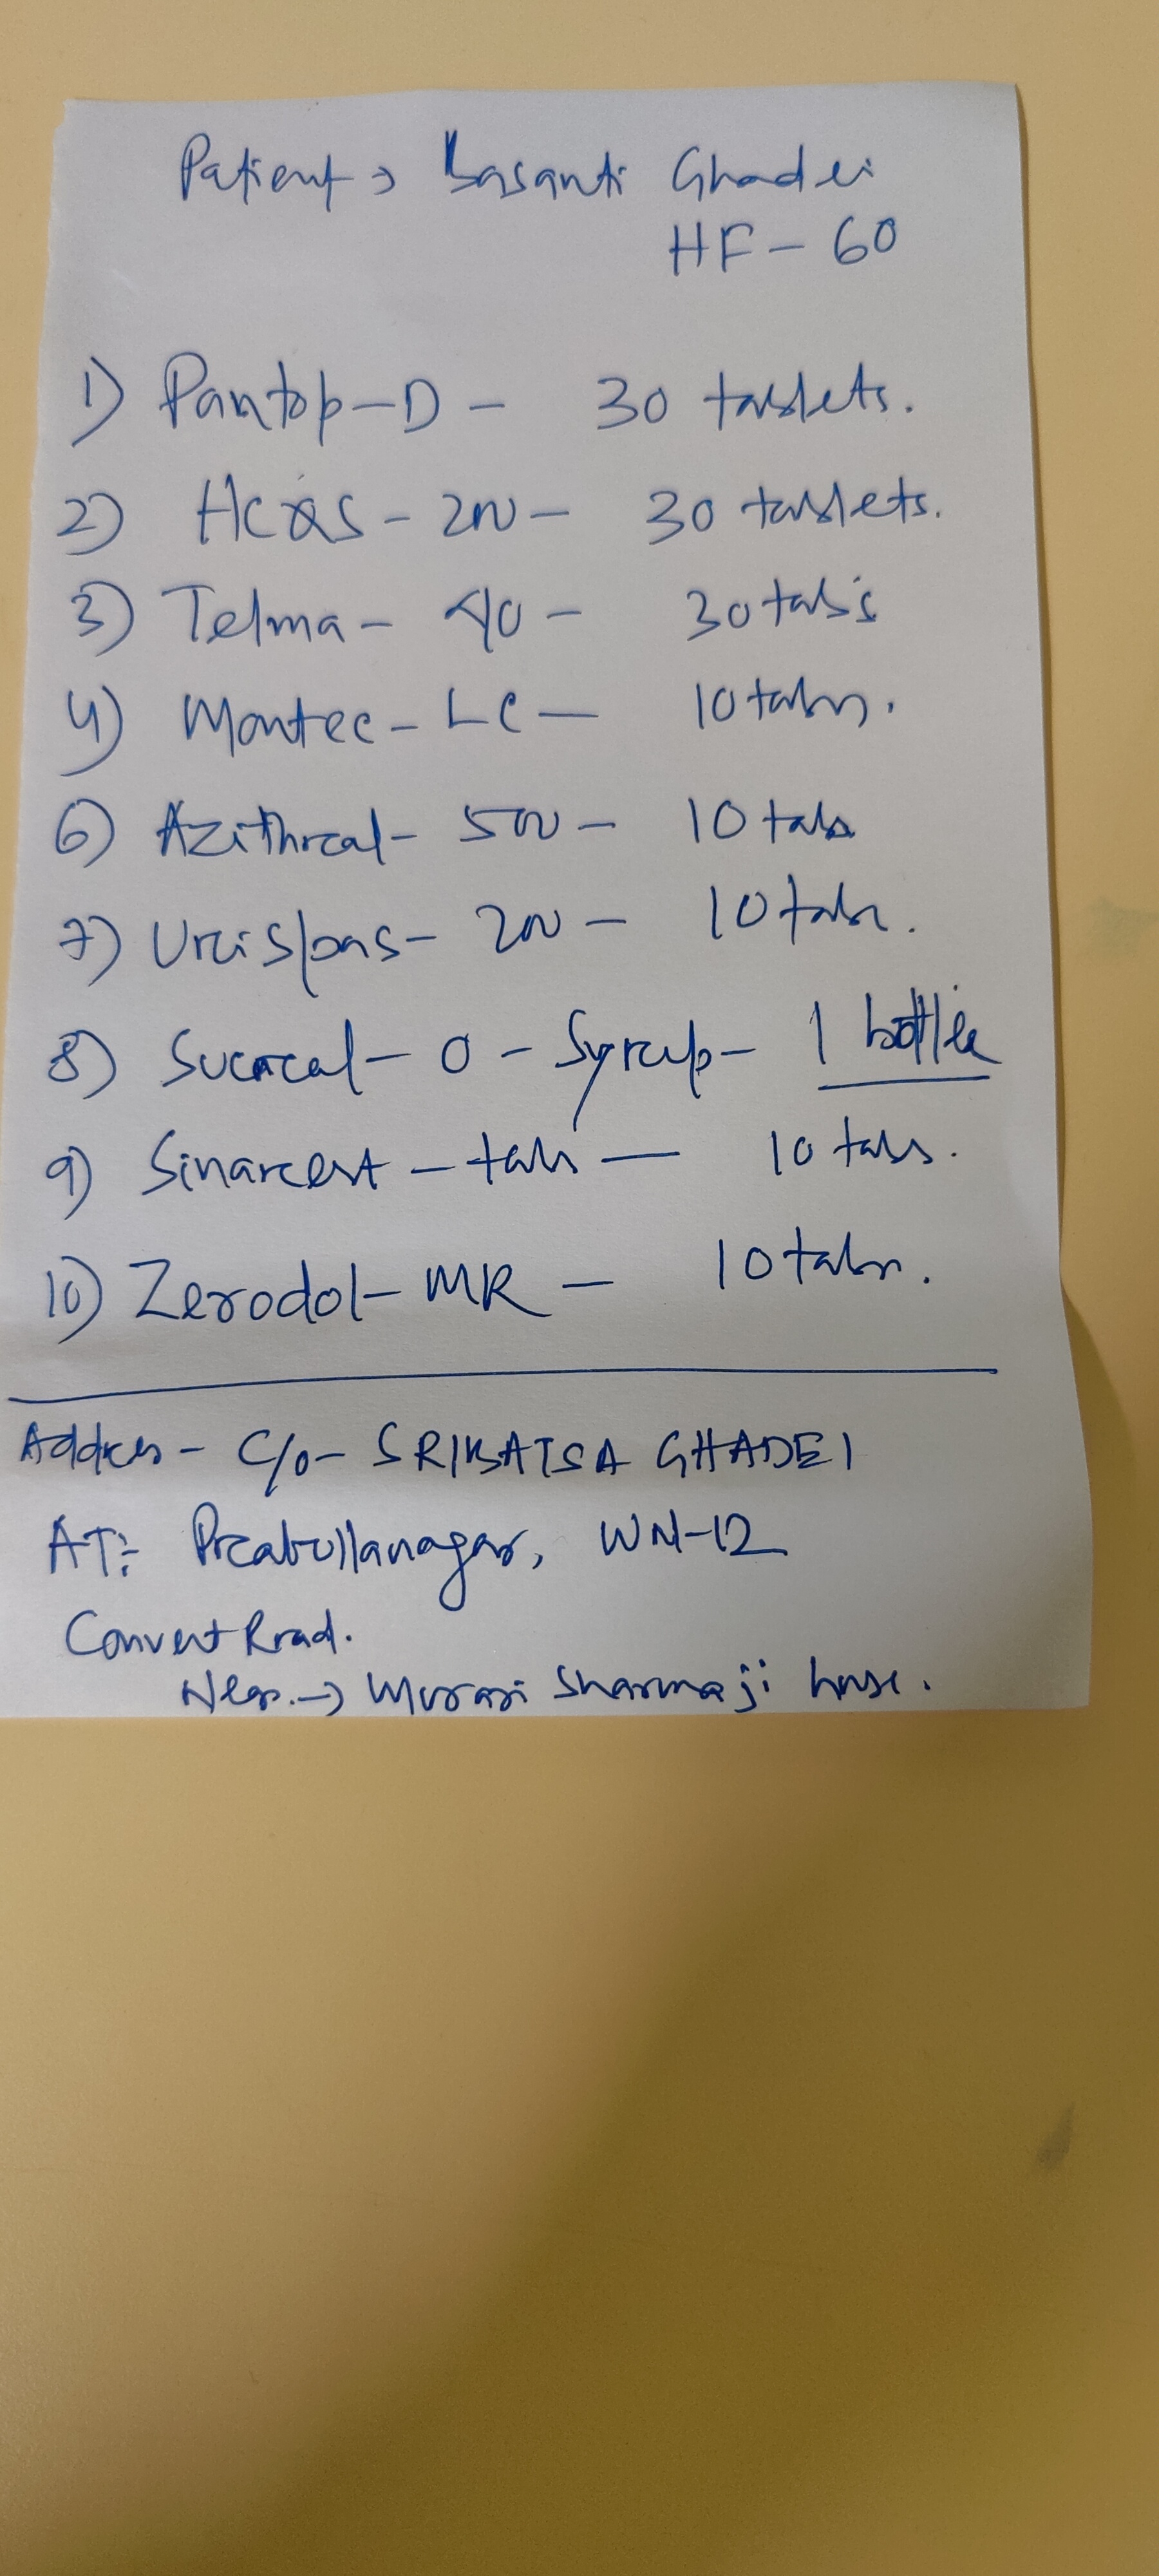 Patient → Basanti Ghadei
HF - 60
1) Pantop-D - 30 tablets.
2) HCQS - 200 - 30 tablets.
3) Telma - 40 - 30 tab's
4) Montec - LC - 10 tabs.
6) Azithral - 500 - 10 tabs
7) Urispas - 200 - 10 tabs.
8) Sucral - O - Syrup - 1 bottle
9) Sinarest - tab - 10 tabs.
10) Zerodol - MR - 10 tabs.
Address - C/o - SRIBATSA GHADEI
AT:- Prabullanagar, WN-12
Convent Road.
Near. → Murari Sharma ji house.